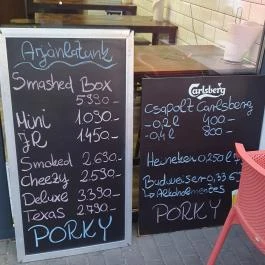 Ajánlatunk
Smashed Box
5590.-
Mini 1090.-
JR 1450.-
Smoked 2.690.-
Cheezy 2.590.-
Deluxe 3.390.-
Texas 2.790.-
PORKY
Carlsberg
Csapolt Carlsberg
-0,2 l 400-
-0,4 l 800-
Heineken 0,250 l
Budweiser 0,33
↳ Alkoholmentes
PORKY